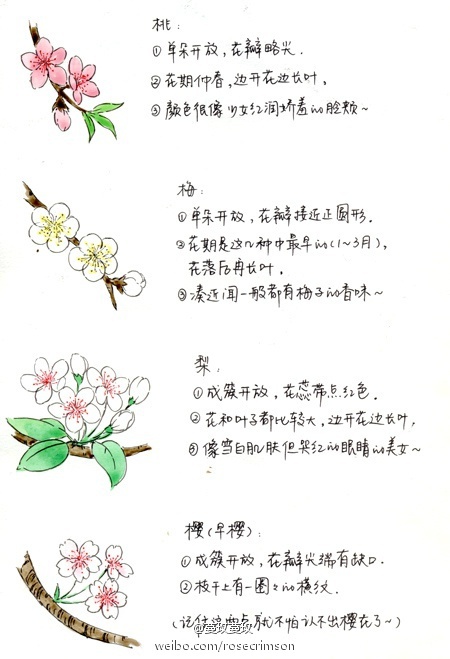 桃：
①单朵开放，花瓣略尖．
②花期仲春，边开花边长叶，
③颜色很像少女红润娇羞的脸颊~
梅：
①单朵开放，花瓣接近正圆形．
②花期是这几种中最早的(1~3月)，
花落后再长叶．
③凑近闻一般都有梅子的香味~
梨：
①成簇开放，花蕊带点红色．
②花和叶子都比较大，边开花边长叶，
③像雪白肌肤但哭红的眼睛的美女~
樱(早樱)：
①成簇开放，花瓣尖端有缺口．
②枝干上有一圈々的横纹．
(记住这两点就不怕认不出樱花了~)
weibo.com/rosecrimson